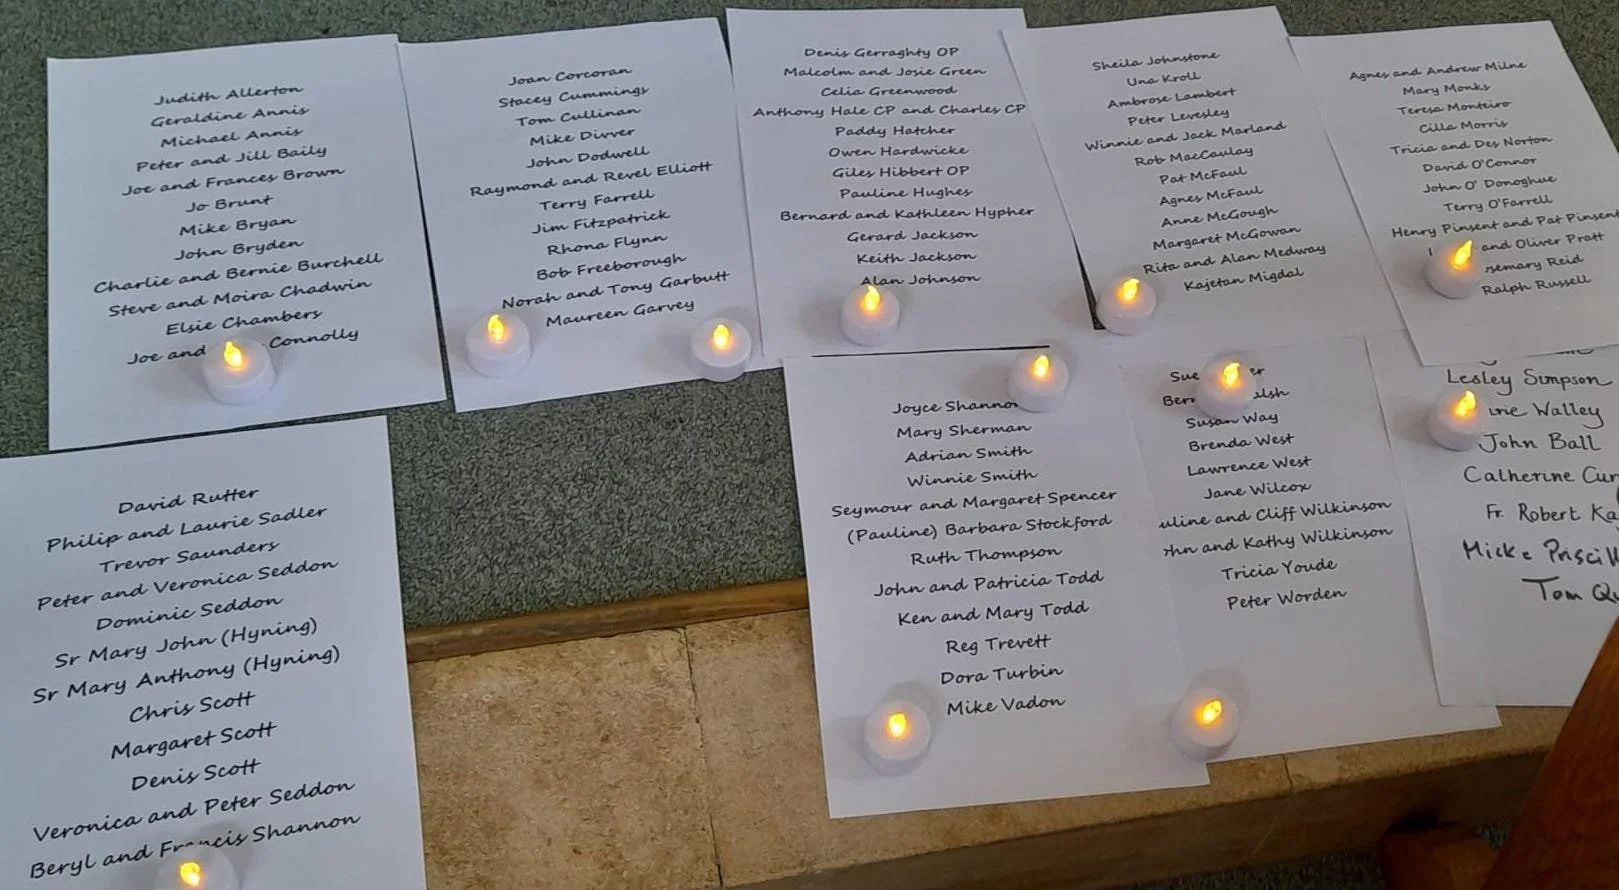 Judith Allerton
Geraldine Annis
Michael Annis
Peter and Jill Baily
Joe and Frances Brown
Jo Brunt
Mike Bryan
John Bryden
Charlie and Bernie Burchell
Steve and Moira Chadwin
Elsie Chambers
Joe and Connolly
Joan Corcoran
Stacey Cummings
Tom Cullinan
Mike Divver
John Dodwell
Raymond and Revel Elliott
Terry Farrell
Jim Fitzpatrick
Rhona Flynn
Bob Freeborough
Norah and Tony Garbutt
Maureen Garvey
Denis Gerraghty OP
Malcolm and Josie Green
Celia Greenwood
Anthony Hale CP and Charles CP
Paddy Hatcher
Owen Hardwicke
Giles Hibbert OP
Pauline Hughes
Bernard and Kathleen Hypher
Gerard Jackson
Keith Jackson
Alan Johnson
Sheila Johnstone
Una Kroll
Ambrose Lambert
Peter Levesley
Winnie and Jack Marland
Rob MacCaulay
Pat McFaul
Agnes McFaul
Anne McGough
Margaret McGowan
Rita and Alan Medway
Kajetan Migdal
Agnes and Andrew Milne
Mary Monks
Teresa Monteiro
Cilla Morris
Tricia and Des Norton
David O'Connor
John O' Donoghue
Terry O'Farrell
Henry Pinsent and Pat Pinsent
and Oliver Pratt
Reid
Ralph Russell
David Rutter
Philip and Laurie Sadler
Trevor Saunders
Peter and Veronica Seddon
Dominic Seddon
Sr Mary John (Hyning)
Sr Mary Anthony (Hyning)
Chris Scott
Margaret Scott
Denis Scott
Veronica and Peter Seddon
Beryl and Francis Shannon
Joyce Shannon
Mary Sherman
Adrian Smith
Winnie Smith
Seymour and Margaret Spencer
(Pauline) Barbara Stockford
Ruth Thompson
John and Patricia Todd
Ken and Mary Todd
Reg Trevett
Dora Turbin
Mike Vadon
Sue
Susan Way
Brenda West
Lawrence West
Jane Wilcox
and Cliff Wilkinson
and Kathy Wilkinson
Tricia Youde
Peter Worden
Lesley Simpson
Walley
John Ball
Catherine
Fr. Robert
Micke
Tom